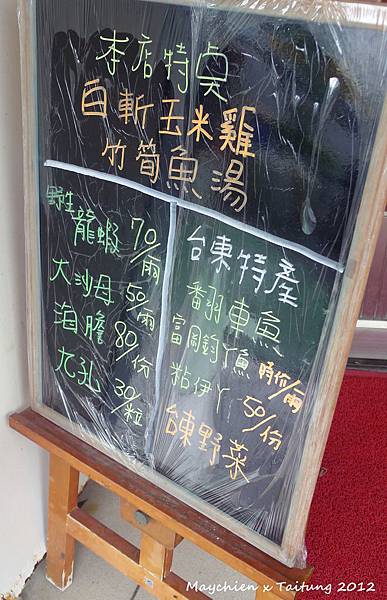 本店特点
白斬玉米雞
竹筍魚湯
野生龍蝦 70/兩
大沙母 50/兩
海膽 80/份
九孔 30/粒
台東特產
翻車魚
富岡釣丫魚 時价/兩
粘伊丫 50/份
台東野菜
Maychien x Taitung 2012